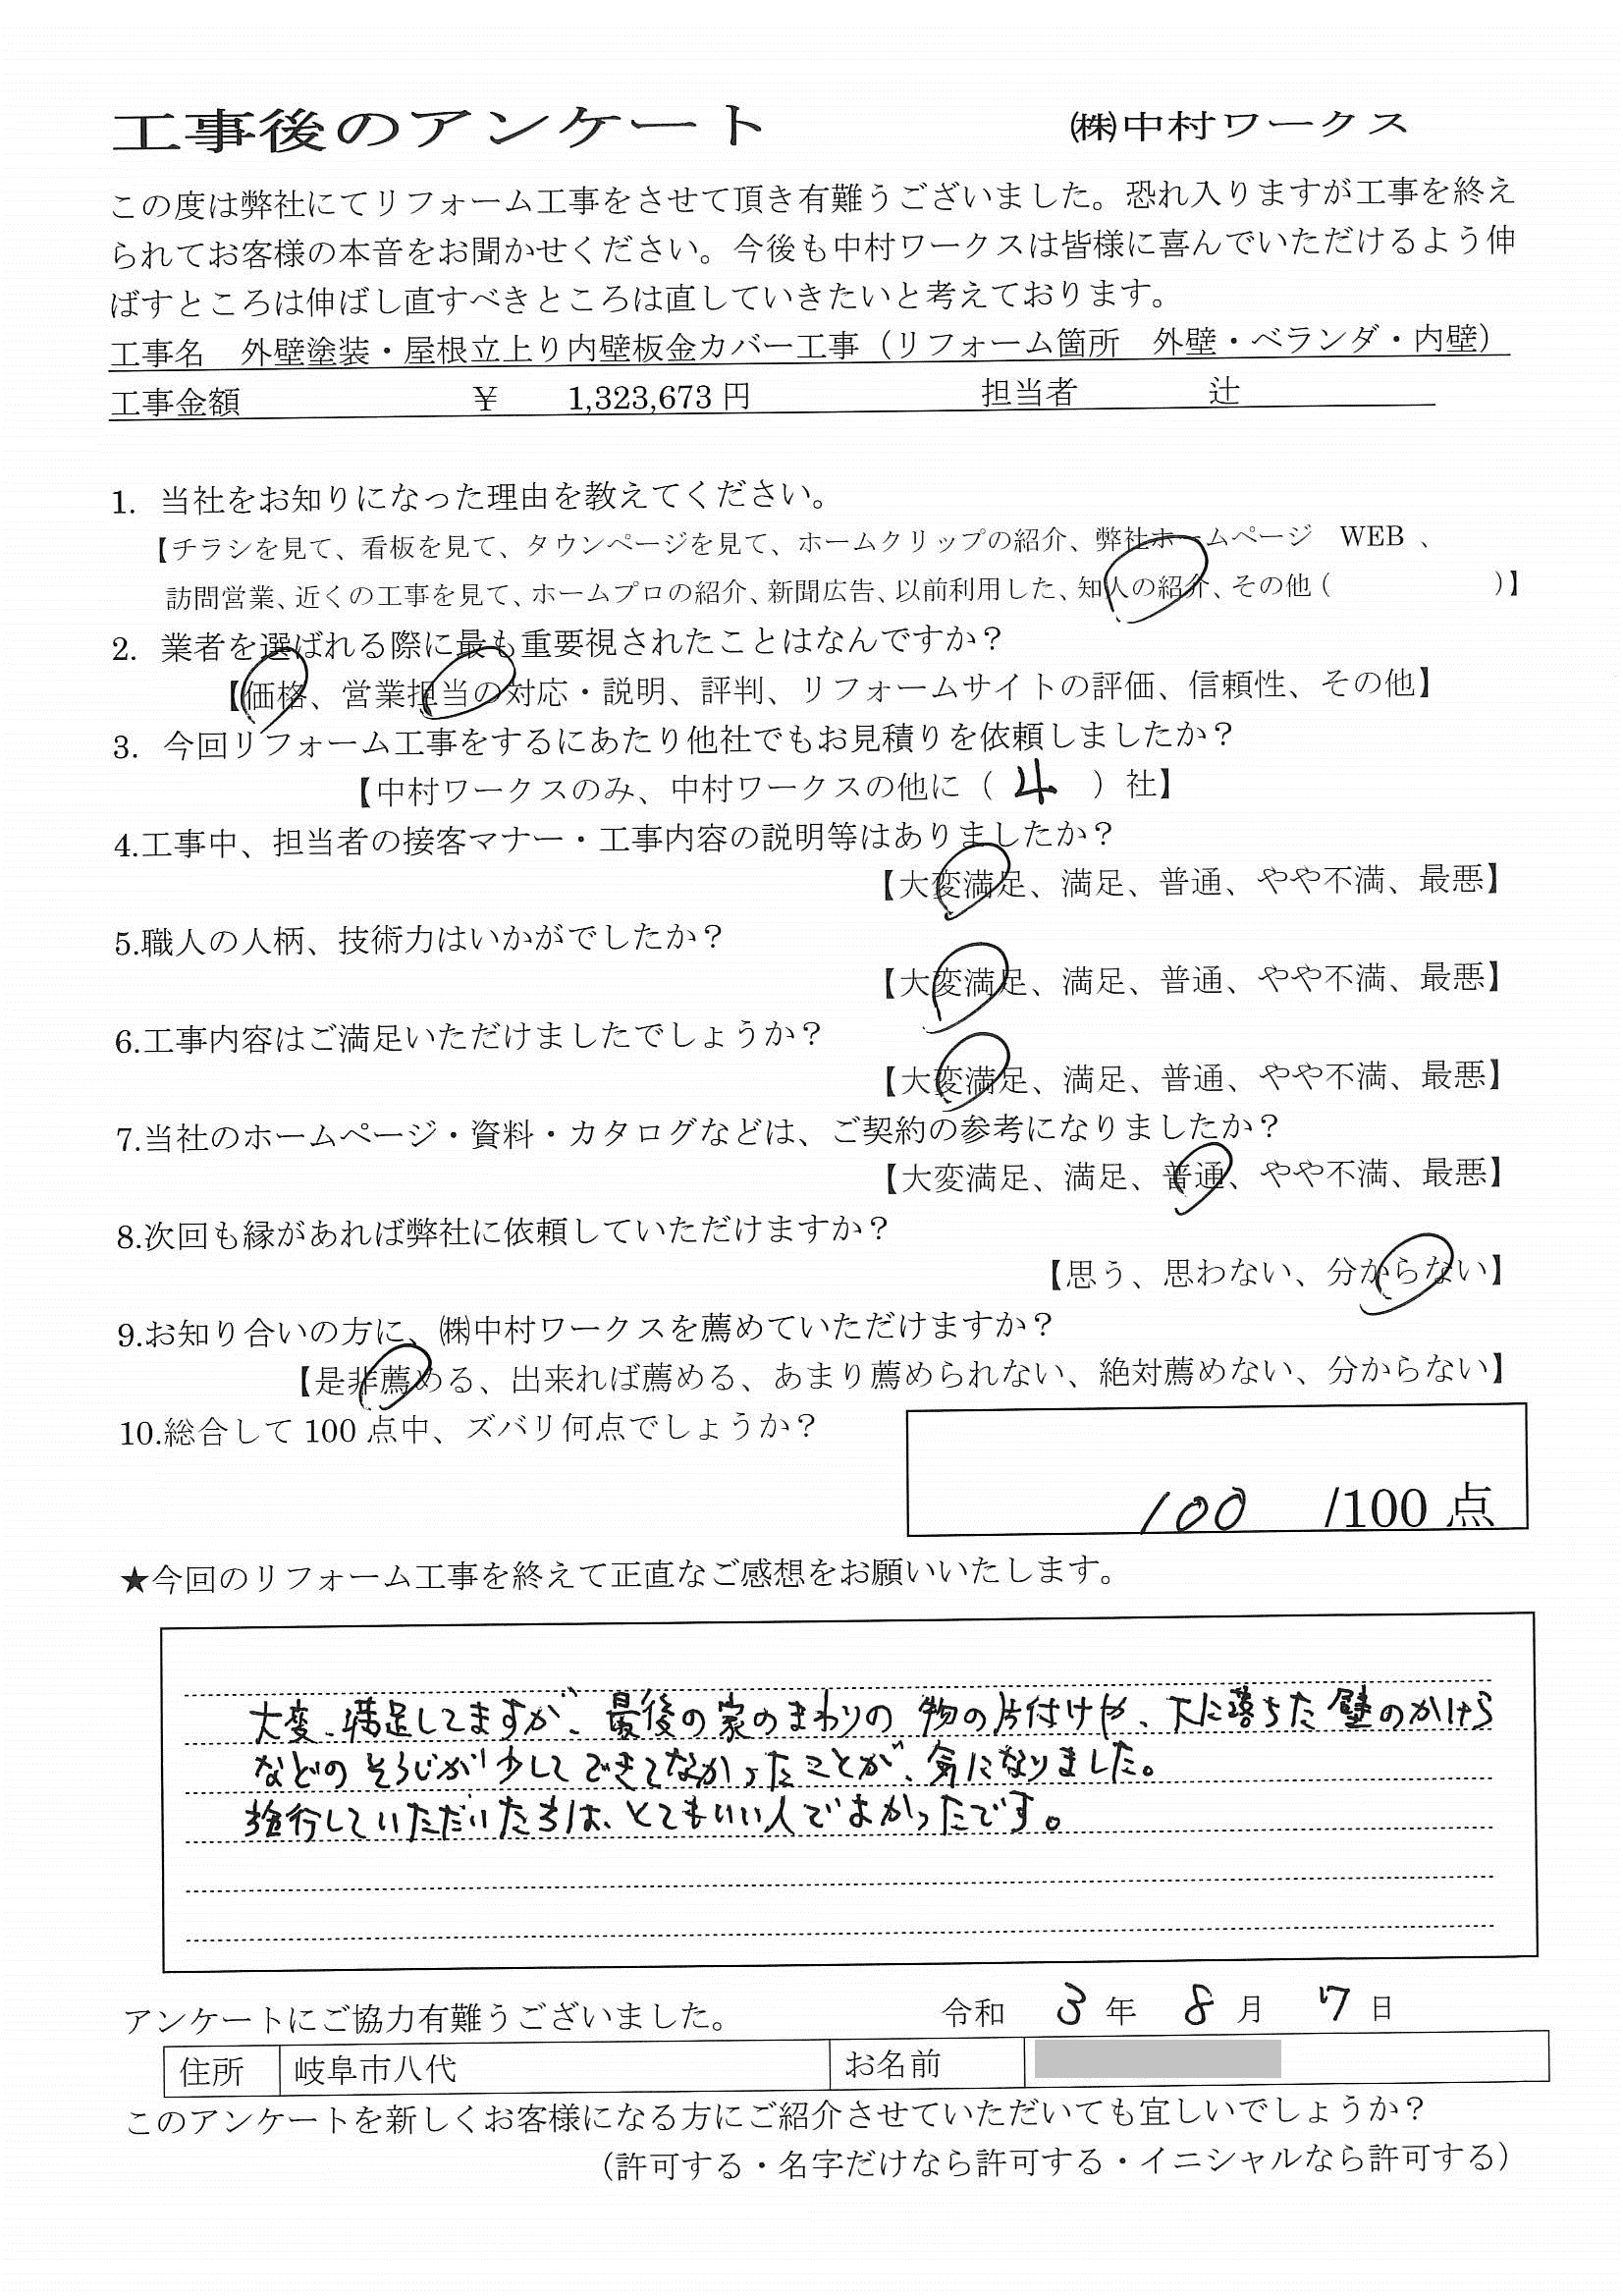 工事後のアンケート ㈱中村ワークス
この度は弊社にてリフォーム工事をさせて頂き有難うございました。恐れ入りますが工事を終え
られてお客様の本音をお聞かせください。今後も中村ワークスは皆様に喜んでいただけるよう伸
ばすところは伸ばし直すべきところは直していきたいと考えております。
工事名 外壁塗装・屋根立上り内壁板金カバー工事（リフォーム箇所 外壁・ベランダ・内壁）
工事金額 ￥ 1,323,673 円 担当者 辻
1. 当社をお知りになった理由を教えてください。
【チラシを見て、看板を見て、タウンページを見て、ホームクリップの紹介、弊社ホームページ WEB 、
訪問営業、近くの工事を見て、ホームプロの紹介、新聞広告、以前利用した、知人の紹介、その他（ ）】
2. 業者を選ばれる際に最も重要視されたことはなんですか？
【価格、営業担当の対応・説明、評判、リフォームサイトの評価、信頼性、その他】
3. 今回リフォーム工事をするにあたり他社でもお見積りを依頼しましたか？
【中村ワークスのみ、中村ワークスの他に（ 4 ）社】
4.工事中、担当者の接客マナー・工事内容の説明等はありましたか？
【大変満足、満足、普通、やや不満、最悪】
5.職人の人柄、技術力はいかがでしたか？
【大変満足、満足、普通、やや不満、最悪】
6.工事内容はご満足いただけましたでしょうか？
【大変満足、満足、普通、やや不満、最悪】
7.当社のホームページ・資料・カタログなどは、ご契約の参考になりましたか？
【大変満足、満足、普通、やや不満、最悪】
8.次回も縁があれば弊社に依頼していただけますか？
【思う、思わない、分からない】
9.お知り合いの方に、㈱中村ワークスを薦めていただけますか？
【是非薦める、出来れば薦める、あまり薦められない、絶対薦めない、分からない】
10.総合して 100 点中、ズバリ何点でしょうか？
100 /100 点
★今回のリフォーム工事を終えて正直なご感想をお願いいたします。
大変、満足してますが、最後の家のまわりの物の片付けや、下に落ちた壁のかけら
などのそうじが少してできてなかったことが、気になりました。
施行していただいた方は、とてもいい人でよかったです。
アンケートにご協力有難うございました。 令和 3 年 8 月 7 日
住所 岐阜市八代 お名前
このアンケートを新しくお客様になる方にご紹介させていただいても宜しいでしょうか？
（許可する・名字だけなら許可する・イニシャルなら許可する）